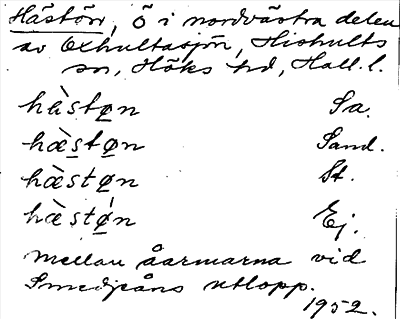 Hästön, ö i nordvästra delen
av Oxhultasjön, Hishults
sn, Höks hd, Hall. l.
hæ̀støn Sa.
hæ̀støn Sand.
hæ̀støn St.
hæ̀stø̀n Ej.
mellan åarmarna vid
Smedjeåns utlopp.
1952.